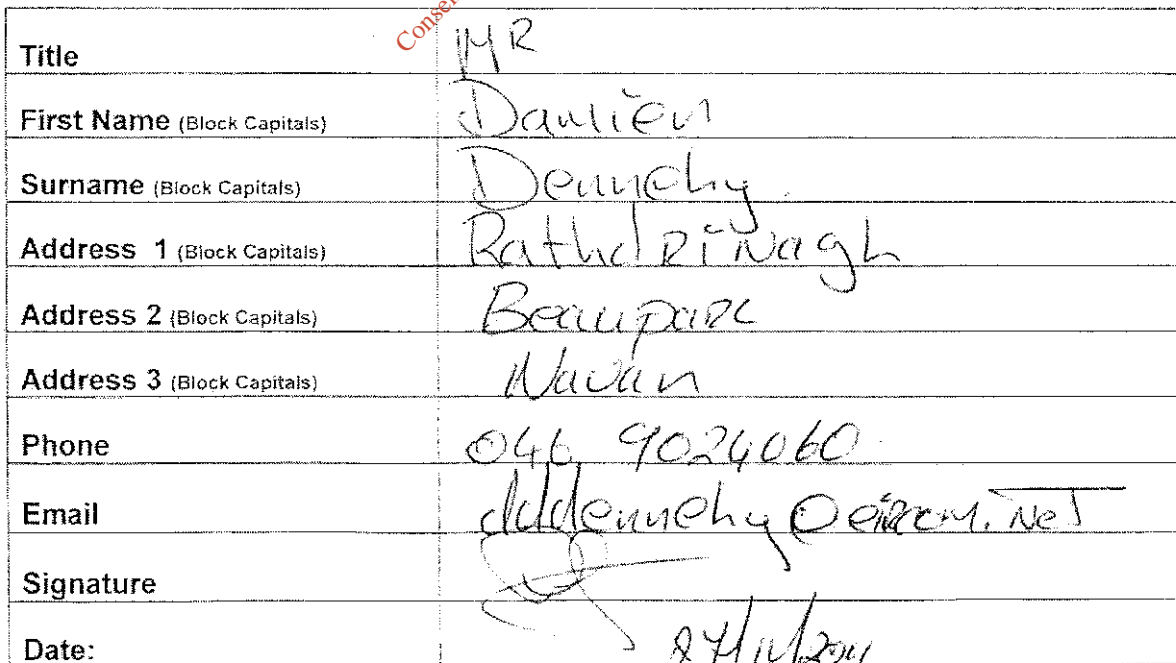 Title MR
First Name (Block Capitals) Damien
Surname (Block Capitals) Dennehy
Address 1 (Block Capitals) RathdRiNagh
Address 2 (Block Capitals) BeaupaRC
Address 3 (Block Capitals) Navan
Phone 046 9024060
Email dddennehy@eircom.Net
Signature
Date: